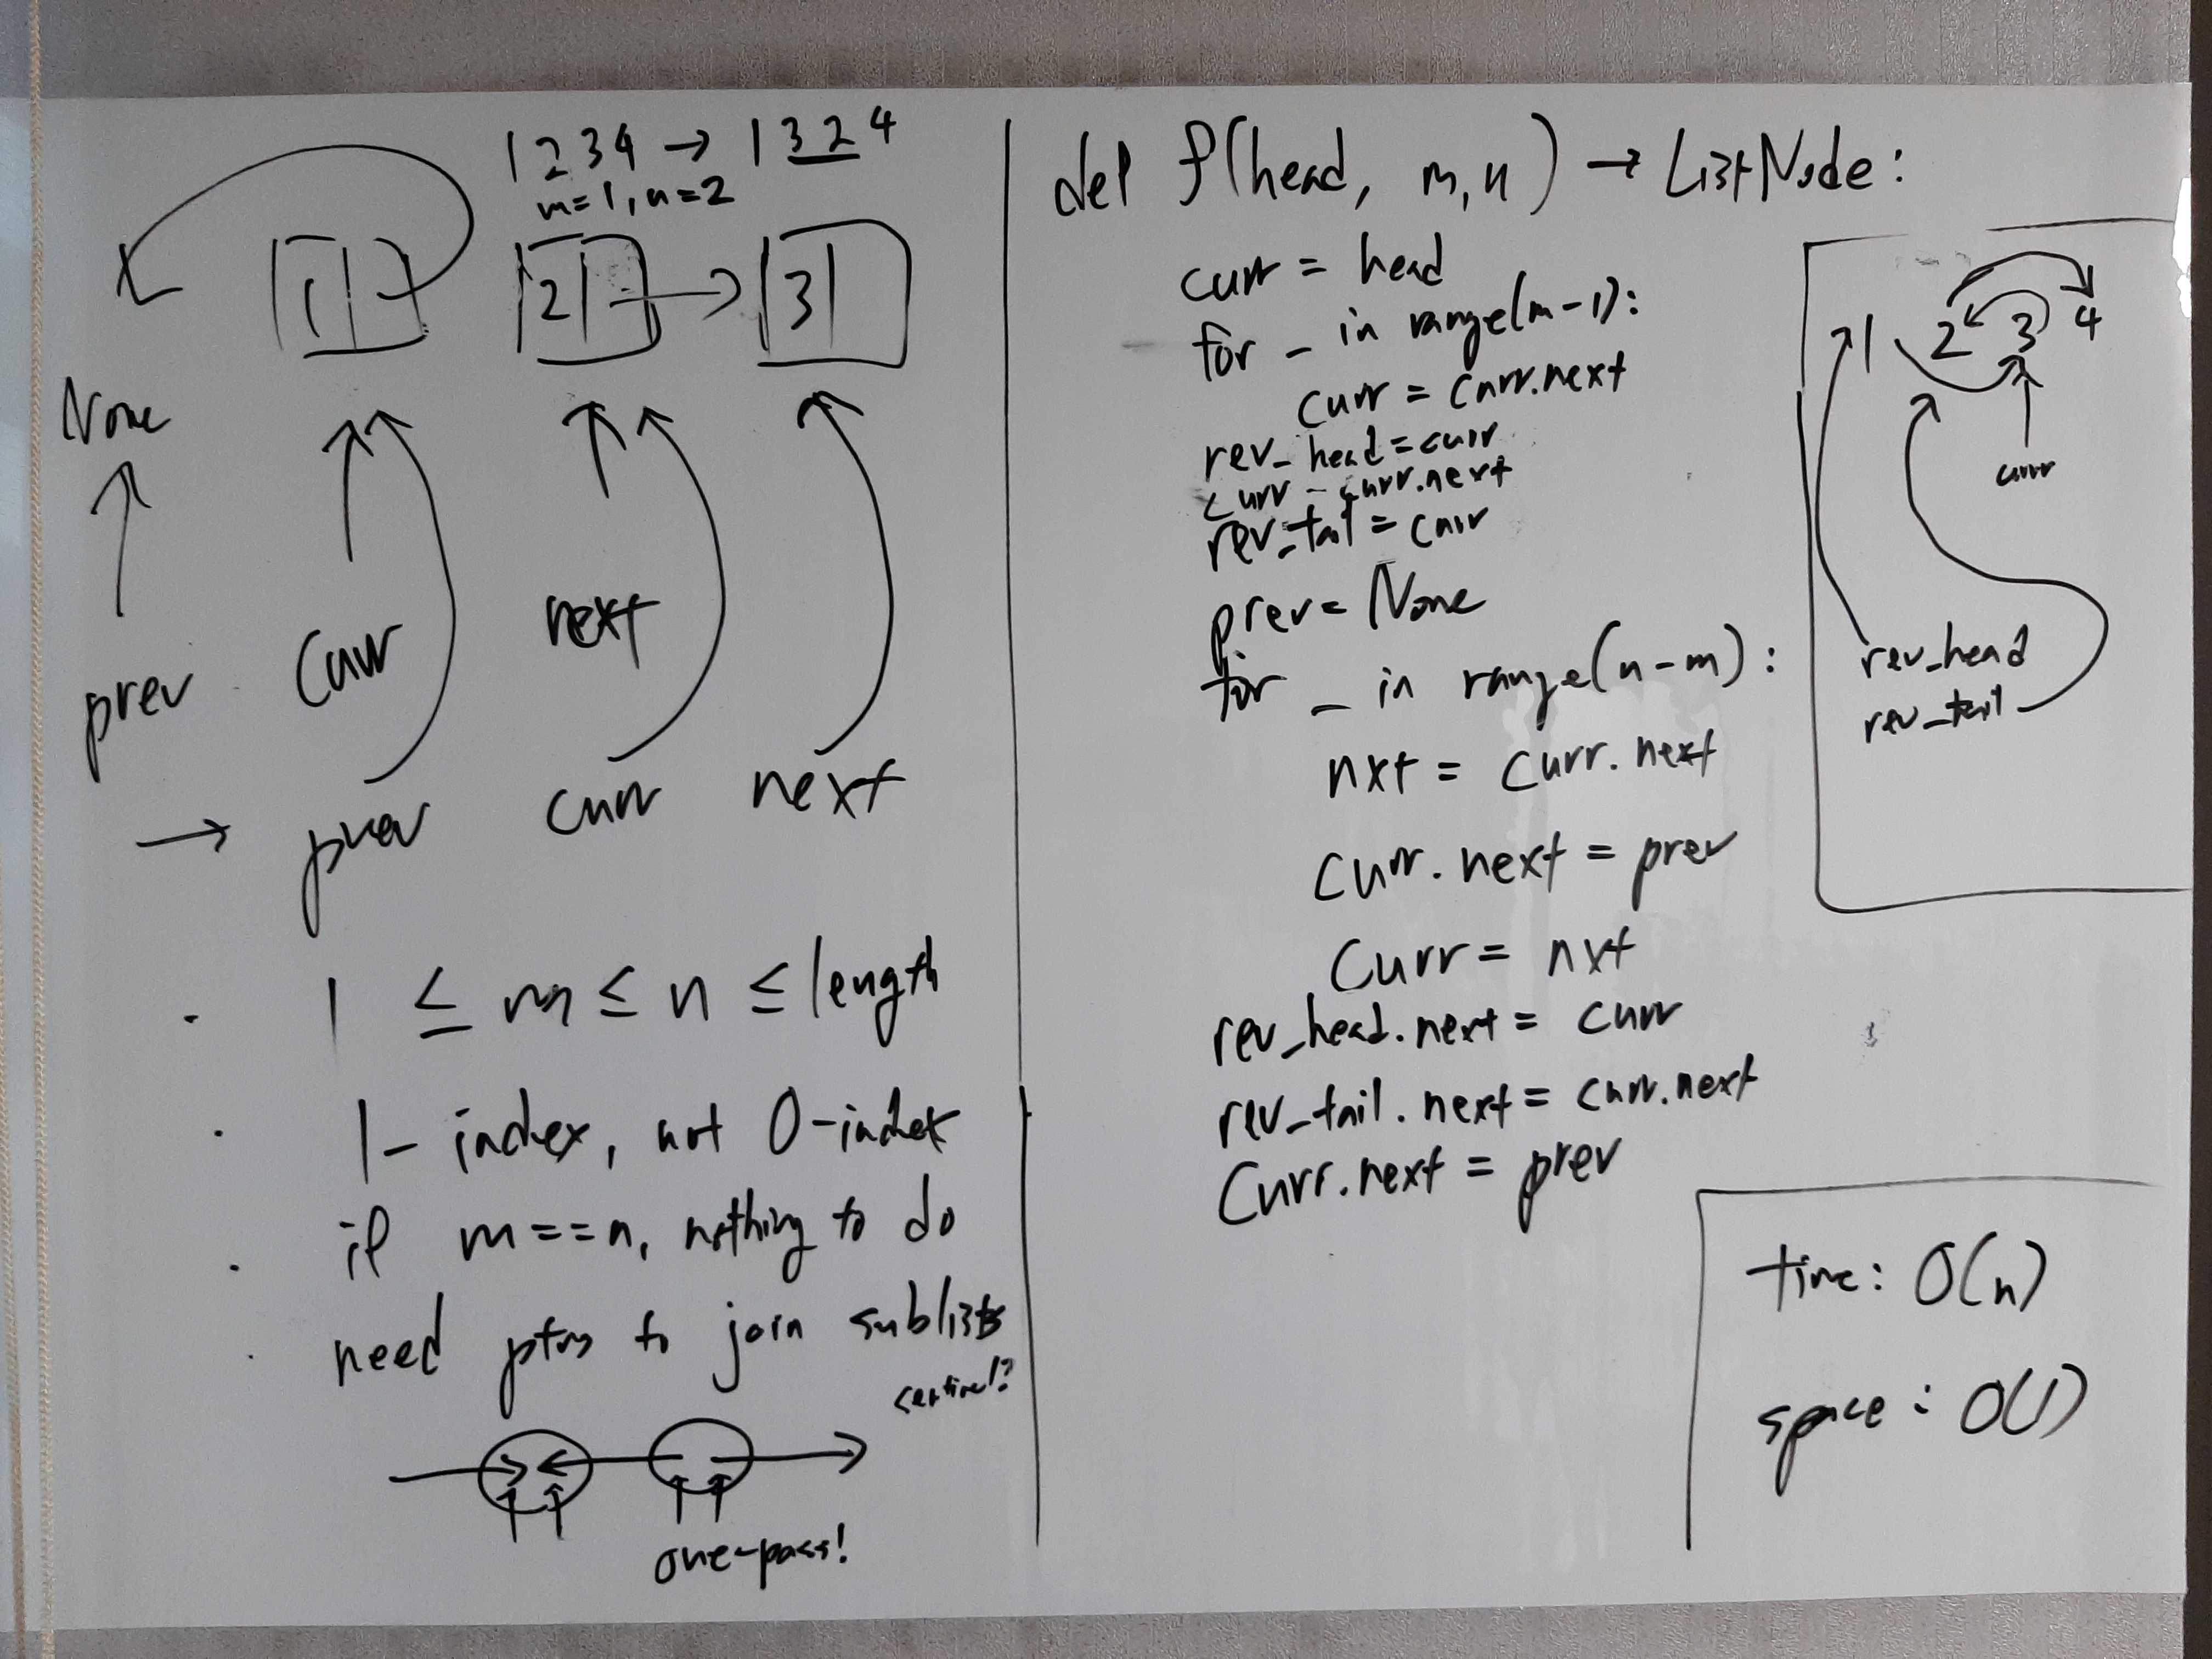 1 2 3 4 → 1 3 2 4
m=1, n=2
1 2 3
None
prev curr next
→ prev curr next
· 1 ≤ m ≤ n ≤ length
· 1-index, not 0-index
· if m==n, nothing to do
· need ptrs to join sublists
sentinel?
one-pass!
def f(head, m,n) → ListNode:
curr = head
for _ in range(m-1):
curr = curr.next
rev_head=curr
curr = curr.next
rev_tail = curr
prev= None
for _ in range(n-m):
nxt = curr.next
curr.next = prev
curr = nxt
rev_head.next = curr
rev_tail.next = curr.next
curr.next = prev
1 2 3 4
curr
rev_head
rev_tail
time: O(n)
space: O(1)